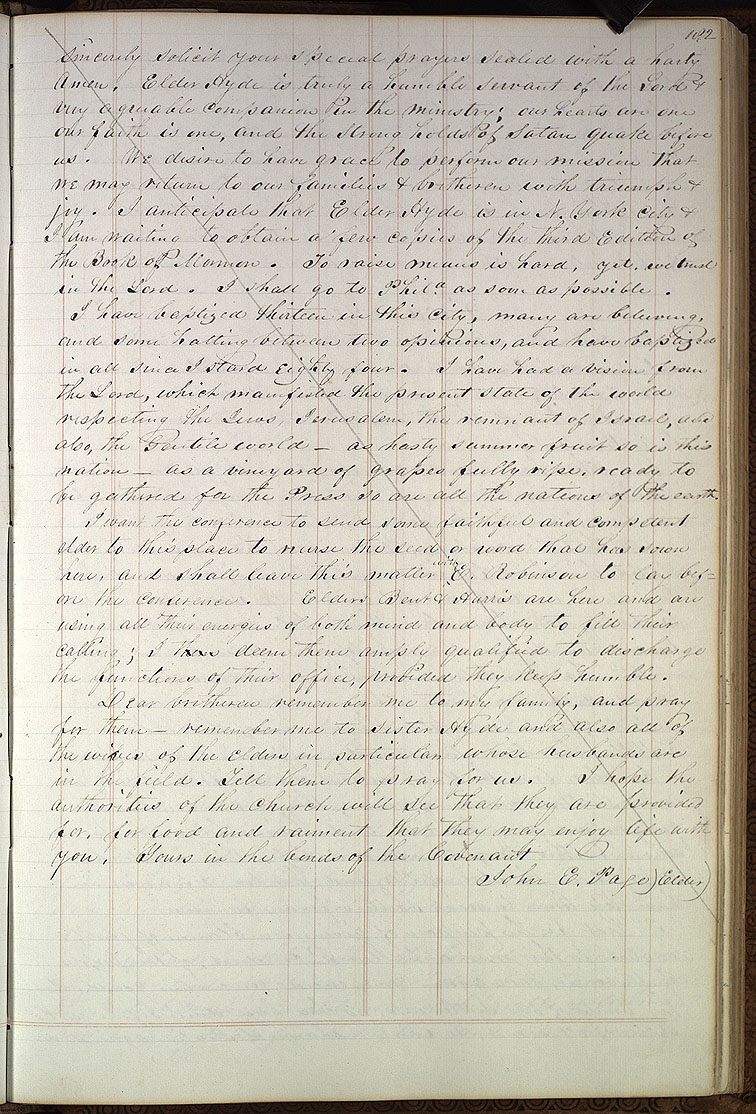 102
sincerely solicit your special prayers sealed with a harty
amen. Elder Hyde is truly a humble servant of the Lord &
very agreable companion in the ministry; our hearts are one
our faith is one, and the strong holds of Satan quake before
us. We desire to have grace to perform our mission that
we may return to our families & bretheren with triumph &
joy. I anticipate that Elder Hyde is in N. York city &
I am waiting to obtain a few copies of the third Edition of
the Book of Mormon. To raise means is hard, yet we trust
in the Lord. I shall go to Phila as soon as possible.
I have baptized thirteen in this city, many are believing,
and some halting between two opinions, and have baptized
in all since I stard eighty four. I have had a vision from
the Lord, which manifested the present state of the world
respecting the Jews, Jerusalem, the remnant of Israel, and
also, the Gentile world — as hasty summer fruit so is this
nation — as a vineyard of grapes fully ripe, ready to
be gathered for the Press so are all the nations of the earth.
I want the conference to send some faithful and competent
elder to this place to nurse the seed or word that has sown
here, and shall leave this matter with E. Robinson to lay bef=
ore the conference. Elders Bent & Harris are here and are
using all their energies of both mind and body to fill their
calling; I deem them amply qualified to discharge
the functions of their office, provided they keep humble.
Dear bretheren remember me to my family, and pray
for them — remember me to sister Hyde and also all of
the wives of the elders in particular whose husbands are
in the field. Tell them to pray for us. I hope the
authorities of the church will see that they are provided
for, for food and raiment that they may enjoy life with
you. Yours in the bonds of the Covenant
John E. Page) Elder)